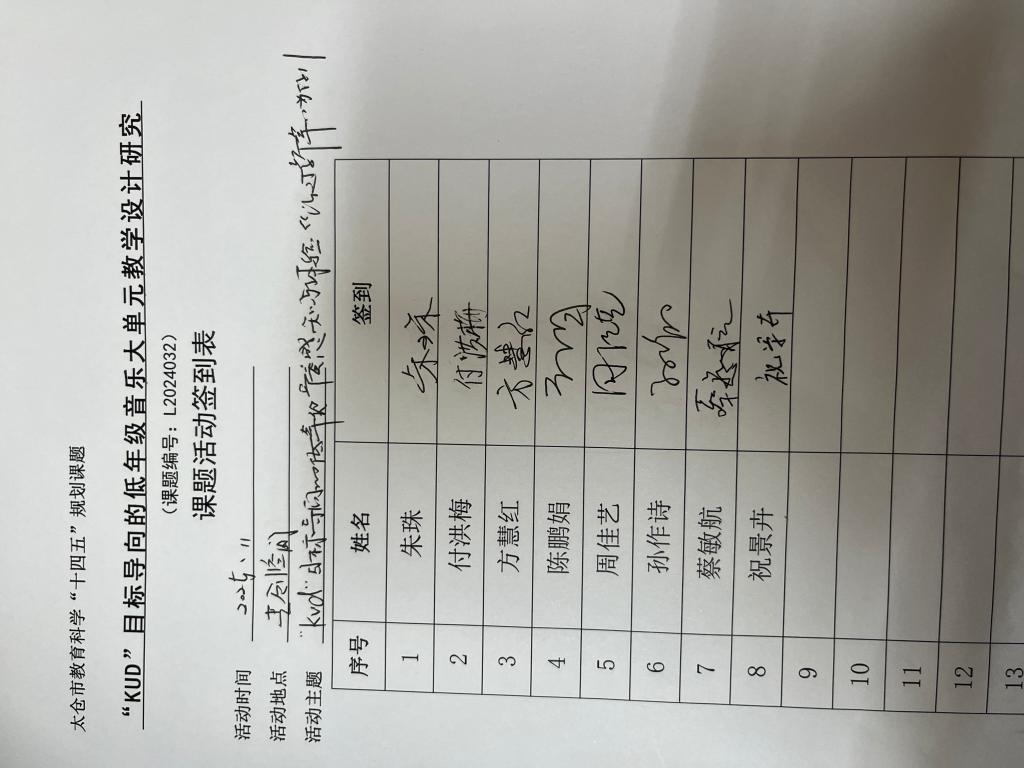 太仓市教育科学“十四五”规划课题
“KUD”目标导向的低年级音乐大单元教学设计研究
（课题编号：L2024032）
课题活动签到表
活动时间 2025.11
活动地点
活动主题 "KUD"目标导向
序号 姓名 签到
1 朱珠 朱珠
2 付洪梅 付洪梅
3 方慧红 方慧红
4 陈鹏娟
5 周佳艺
6 孙作诗
7 蔡敏航 蔡敏航
8 祝景卉 祝景卉
9
10
11
12
13